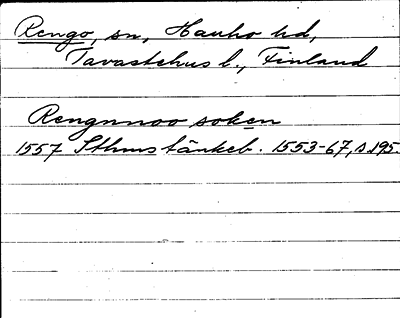 Rengo, sn, Hauho hd,
Tavastehus l., Finland
Rengnnoo soken
1557 Sthms tänkeb. 1553-67, s. 195.